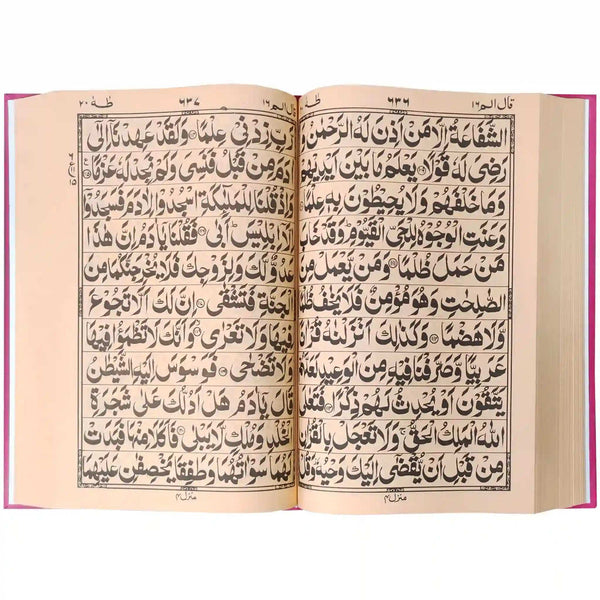 قال الم ١٦
٦٣٦
طٰهٰ
الشَّفَاعَةُ اِلَّا مَنْ اَذِنَ لَهُ الرَّحْمٰنُ
رَضِیَ لَهٗ قَوْلًا یَعْلَمُ مَا بَیْنَ اَیْدِیْهِمْ
وَمَا خَلْفَهُمْ وَلَا یُحِیْطُوْنَ بِهٖ عِلْمًا
وَعَنَتِ الْوُجُوْهُ لِلْحَیِّ الْقَیُّوْمِ وَقَدْ خَابَ
مَنْ حَمَلَ ظُلْمًا وَمَنْ یَّعْمَلْ مِنَ
الصّٰلِحٰتِ وَهُوَ مُؤْمِنٌ فَلَا یَخٰفُ ظُلْمًا
وَّلَا هَضْمًا وَكَذٰلِكَ اَنْزَلْنٰهُ قُرْاٰنًا
عَرَبِیًّا وَّصَرَّفْنَا فِیْهِ مِنَ الْوَعِیْدِ لَعَلَّهُمْ
یَتَّقُوْنَ اَوْ یُحْدِثُ لَهُمْ ذِكْرًا فَتَعٰلَی
اللّٰهُ الْمَلِكُ الْحَقُّ وَلَا تَعْجَلْ بِالْقُرْاٰنِ
مِنْ قَبْلِ اَنْ یُّقْضٰۤی اِلَیْكَ وَحْیُهٗ وَقُلْ
منزل ٤
قال الم ١٦
٦٣٧
طٰهٰ ٢٠
رَّبِّ زِدْنِیْ عِلْمًا وَلَقَدْ عَهِدْنَاۤ اِلٰۤی
اٰدَمَ مِنْ قَبْلُ فَنَسِیَ وَلَمْ نَجِدْ لَهٗ عَزْمًا
وَاِذْ قُلْنَا لِلْمَلٰٓئِكَةِ اسْجُدُوْا لِاٰدَمَ فَسَجَدُوْۤا
اِلَّاۤ اِبْلِیْسَ اَبٰی فَقُلْنَا یٰۤاٰدَمُ اِنَّ هٰذَا
عَدُوٌّ لَّكَ وَلِزَوْجِكَ فَلَا یُخْرِجَنَّكُمَا مِنَ
الْجَنَّةِ فَتَشْقٰی اِنَّ لَكَ اَلَّا تَجُوْعَ
فِیْهَا وَلَا تَعْرٰی وَاَنَّكَ لَا تَظْمَؤُا فِیْهَا
وَلَا تَضْحٰی فَوَسْوَسَ اِلَیْهِ الشَّیْطٰنُ
قَالَ یٰۤاٰدَمُ هَلْ اَدُلُّكَ عَلٰی شَجَرَةِ
الْخُلْدِ وَمُلْكٍ لَّا یَبْلٰی فَاَكَلَا مِنْهَا فَبَدَتْ
لَهُمَا سَوْاٰتُهُمَا وَطَفِقَا یَخْصِفٰنِ عَلَیْهِمَا
منزل ٤